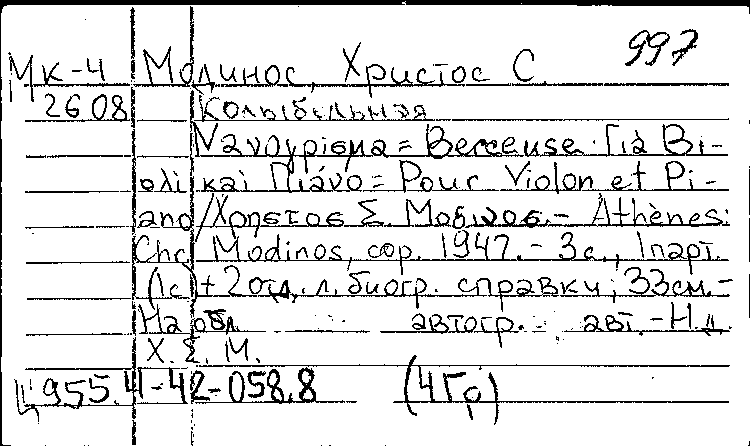 997
Мк-4 Модинос, Христос С.
2608 Колыбельная
Νανούρισμα = Berceuse. Γιὰ Βι-
ολὶ καὶ Πιάνο = Pour Violon et Pi-
ano / Χρηστος Σ. Μοδινος. – Athènes:
Chr. Modinos, cop. 1947. – 3 с., 1 парт.
(1с) + 2 отд. л. биогр. справки; 33 см. –
На обл. автогр. авт. – Н.д.
Χ. Σ. Μ.
Ц 955.4-42-058.8 (4Гр)